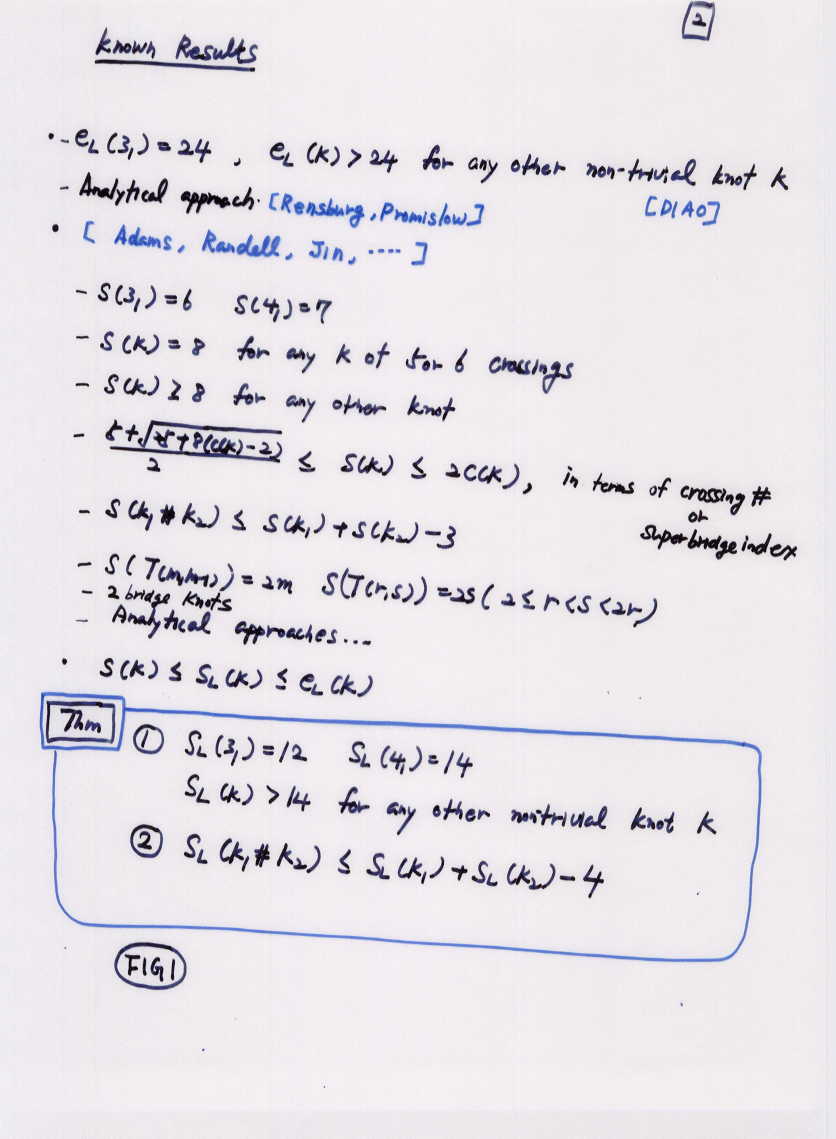 2
Known Results
• - e_L(3_1) = 24 , e_L(K) > 24 for any other non-trivial knot K
- Analytical approach. [Rensburg, Promislow] [DIAO]
• [ Adams, Randell, Jin, ···· ]
- S(3_1) = 6 S(4_1) = 7
- S(K) = 8 for any K of 5 or 6 crossings
- S(K) ≥ 8 for any other knot
- (5+√(25+8(C(K)-2)))/2 ≤ S(K) ≤ 2C(K), in terms of crossing #
or
superbridge index
- S(K_1 # K_2) ≤ S(K_1) + S(K_2) - 3
- S(T(m,m+1)) = 2m S(T(r,s)) = 2s ( 2 ≤ r < s < 2r )
- 2 bridge knots
- Analytical approaches...
• S(K) ≤ S_L(K) ≤ e_L(K)
Thm
① S_L(3_1) = 12 S_L(4_1) = 14
S_L(K) > 14 for any other nontrivial knot K
② S_L(K_1 # K_2) ≤ S_L(K_1) + S_L(K_2) - 4
FIG 1